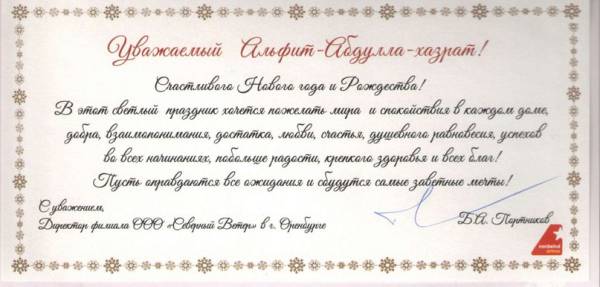 Уважаемый Альфит-Абдулла-хазрат!
Счастливого Нового года и Рождества!
В этот светлый праздник хочется пожелать мира и спокойствия в каждом доме,
добра, взаимопонимания, достатка, любви, счастья, душевного равновесия, успехов
во всех начинаниях, побольше радости, крепкого здоровья и всех благ!
Пусть оправдаются все ожидания и сбудутся самые заветные мечты!
С уважением,
Директор филиала ООО «Северный Ветер» в г. Оренбурге
Б.А. Портников
nordwind
airlines